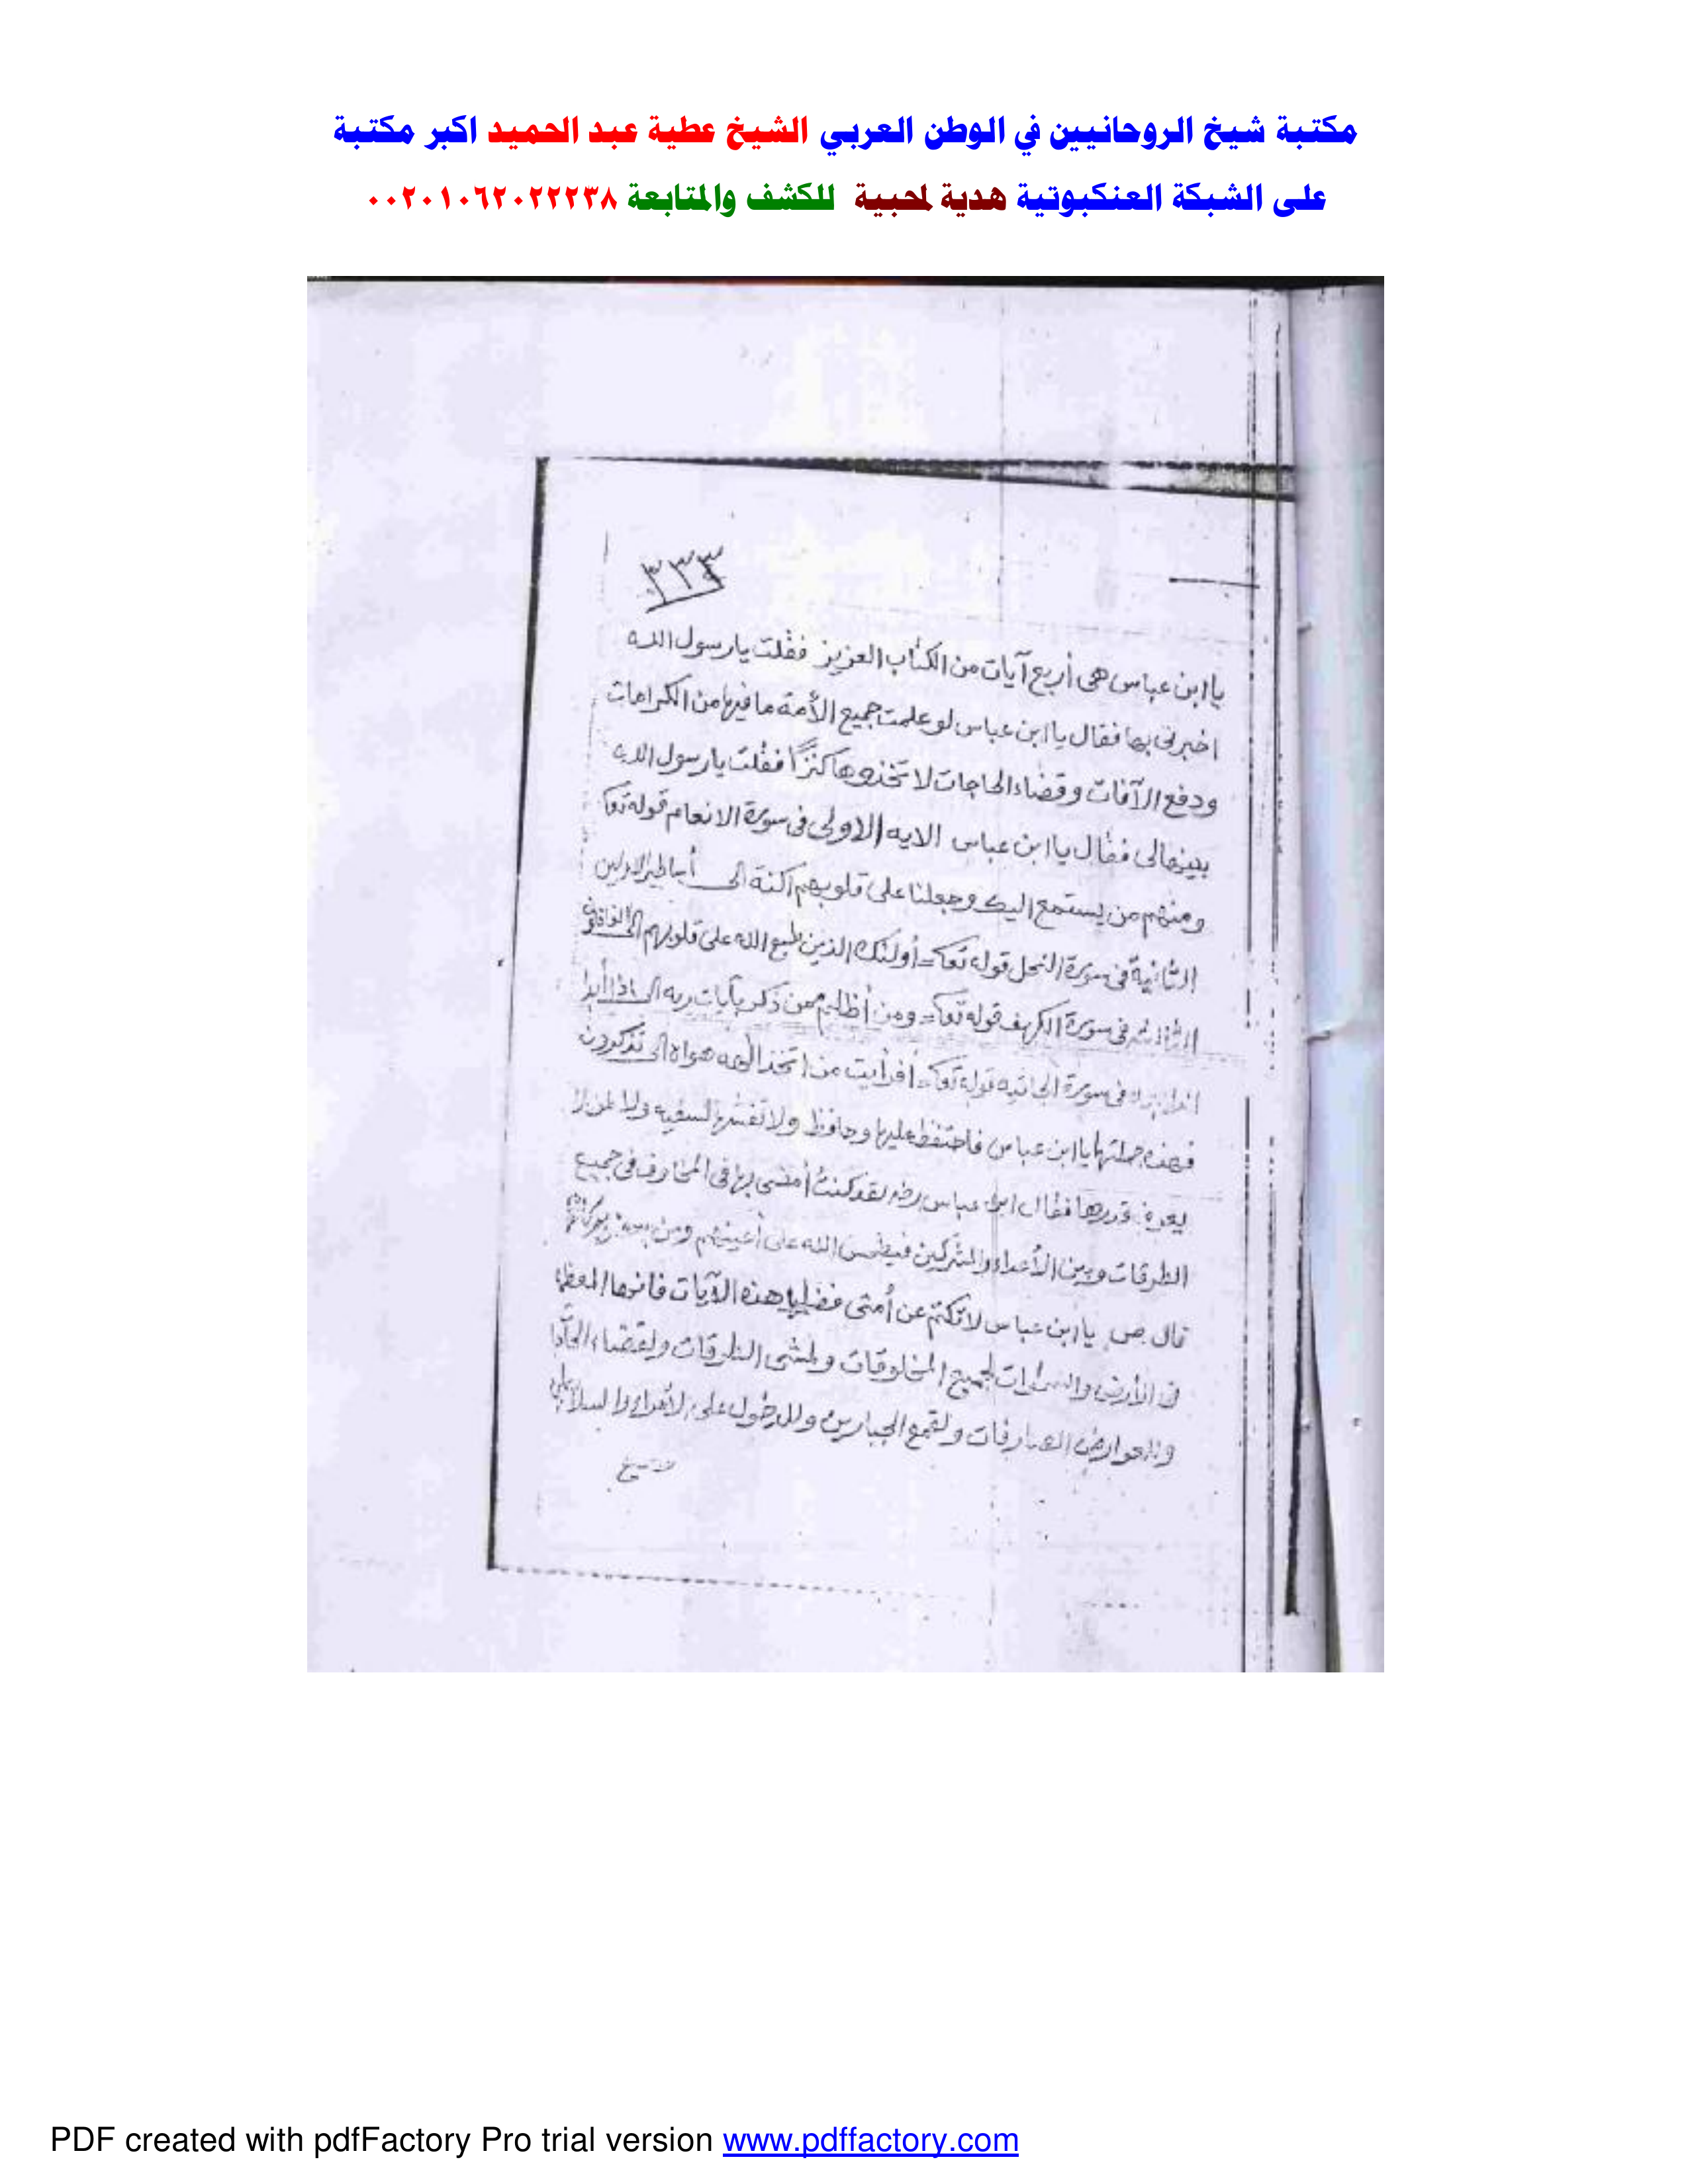 مكتبة شيخ الروحانيين في الوطن العربي الشيخ عطية عبد الحميد اكبر مكتبة
على الشبكة العنكبوتية هدية لمحبية للكشف والمتابعة ٠٠٢٠١٠٦٢٠٢٢٢٣٨
٣٣٣
يا ابن عباس هى أربع آيات من الكتاب العزيز فقلت يا رسول الله
اخبرنى بها فقال يا ابن عباس لو علمت جميع الأمة ما فيها من الكرامات
ودفع الآفات وقضاء الحاجات لاتخذوها كنزًا فقلت يا رسول الله
بينهالى فقال يا ابن عباس الايه الاولى فى سورة الانعام قوله تعا
ومنهم من يستمع اليك وجعلنا على قلوبهم اكنة الى أساطير الاولين
الثانية فى سورة النحل قوله تعا أولئك الذين طبع الله على قلوبهم الى الغافلون
الثالثه فى سورة الكهف قوله تعا ومن أظلم ممن ذكر بآيات ربه الى اذا أبدا
الرابعه فى سورة الجاثيه قوله تعا أفرأيت من اتخذ الهه هواه الى تذكرون
فهذه جملتها يا ابن عباس فاحتفظ عليها وحافظ ولا تفشها لسفيه ولا لمن لا
يعرف قدرها فقال ابن عباس رضه لقد كنت أمشى بها فى المخاوف فى جميع
الطرقات وبين الأعداء والمشركين فيطمس الله على أعينهم ومن
قال ص يا ابن عباس لا تكتم عن أمتى فضل هذه الآيات فانها المعظمه
فى الأرض والسموات لجميع المخلوقات ولمشى الطرقات ولقضاء
والعوارض الصارفات ولقمع الجبارين وللدخول على الأمراء والسلاطين
PDF created with pdfFactory Pro trial version www.pdffactory.com